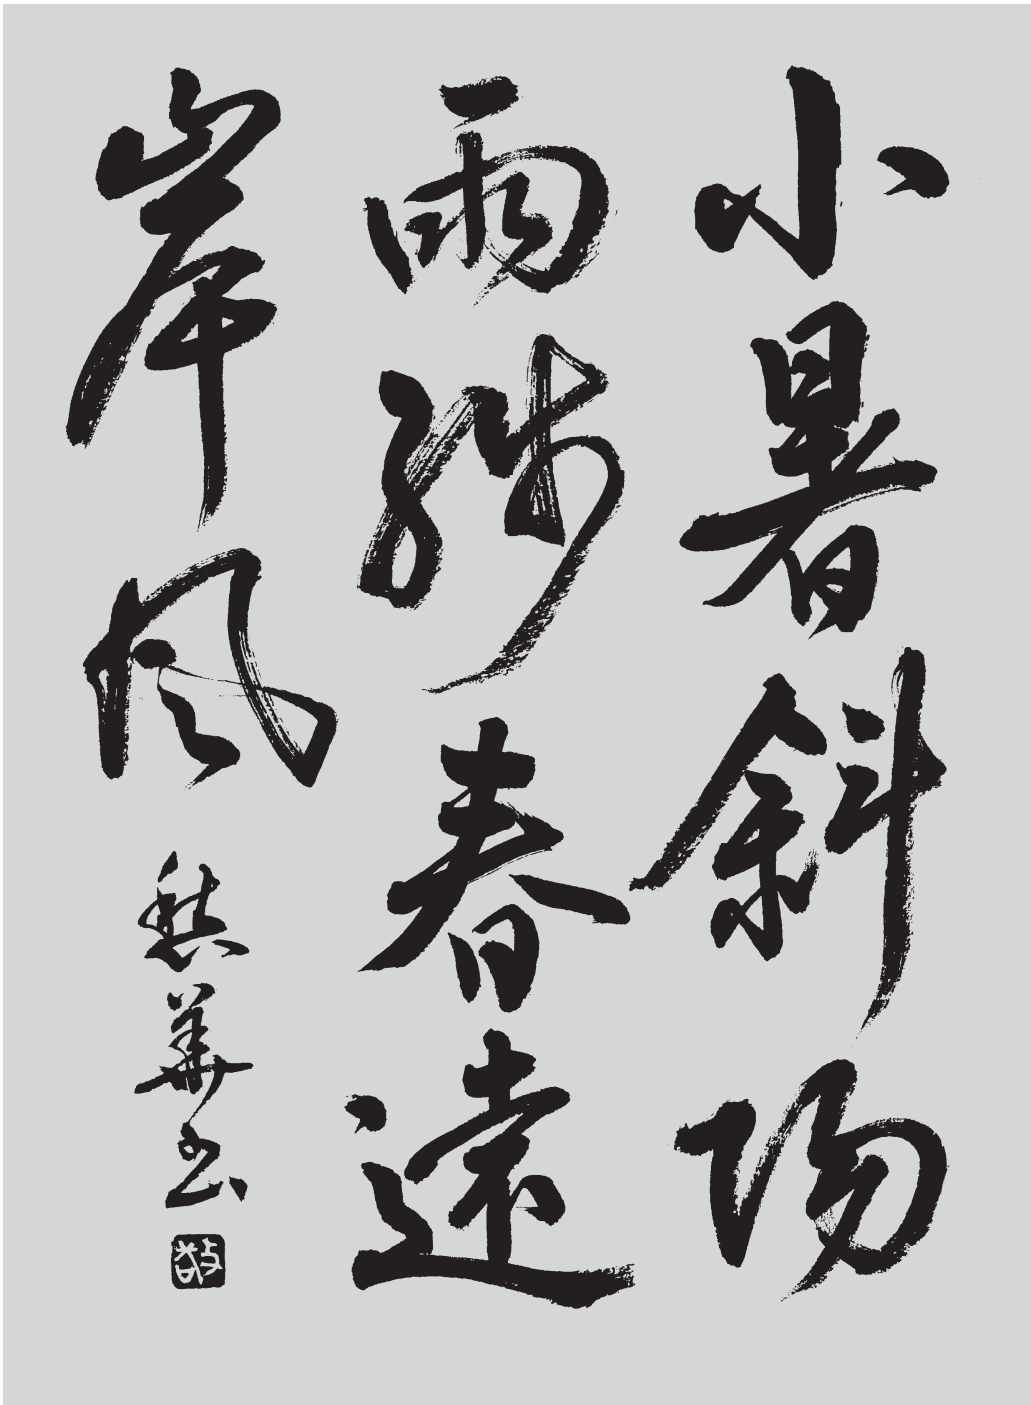 小暑斜陽
雨春遠
岸風
華書